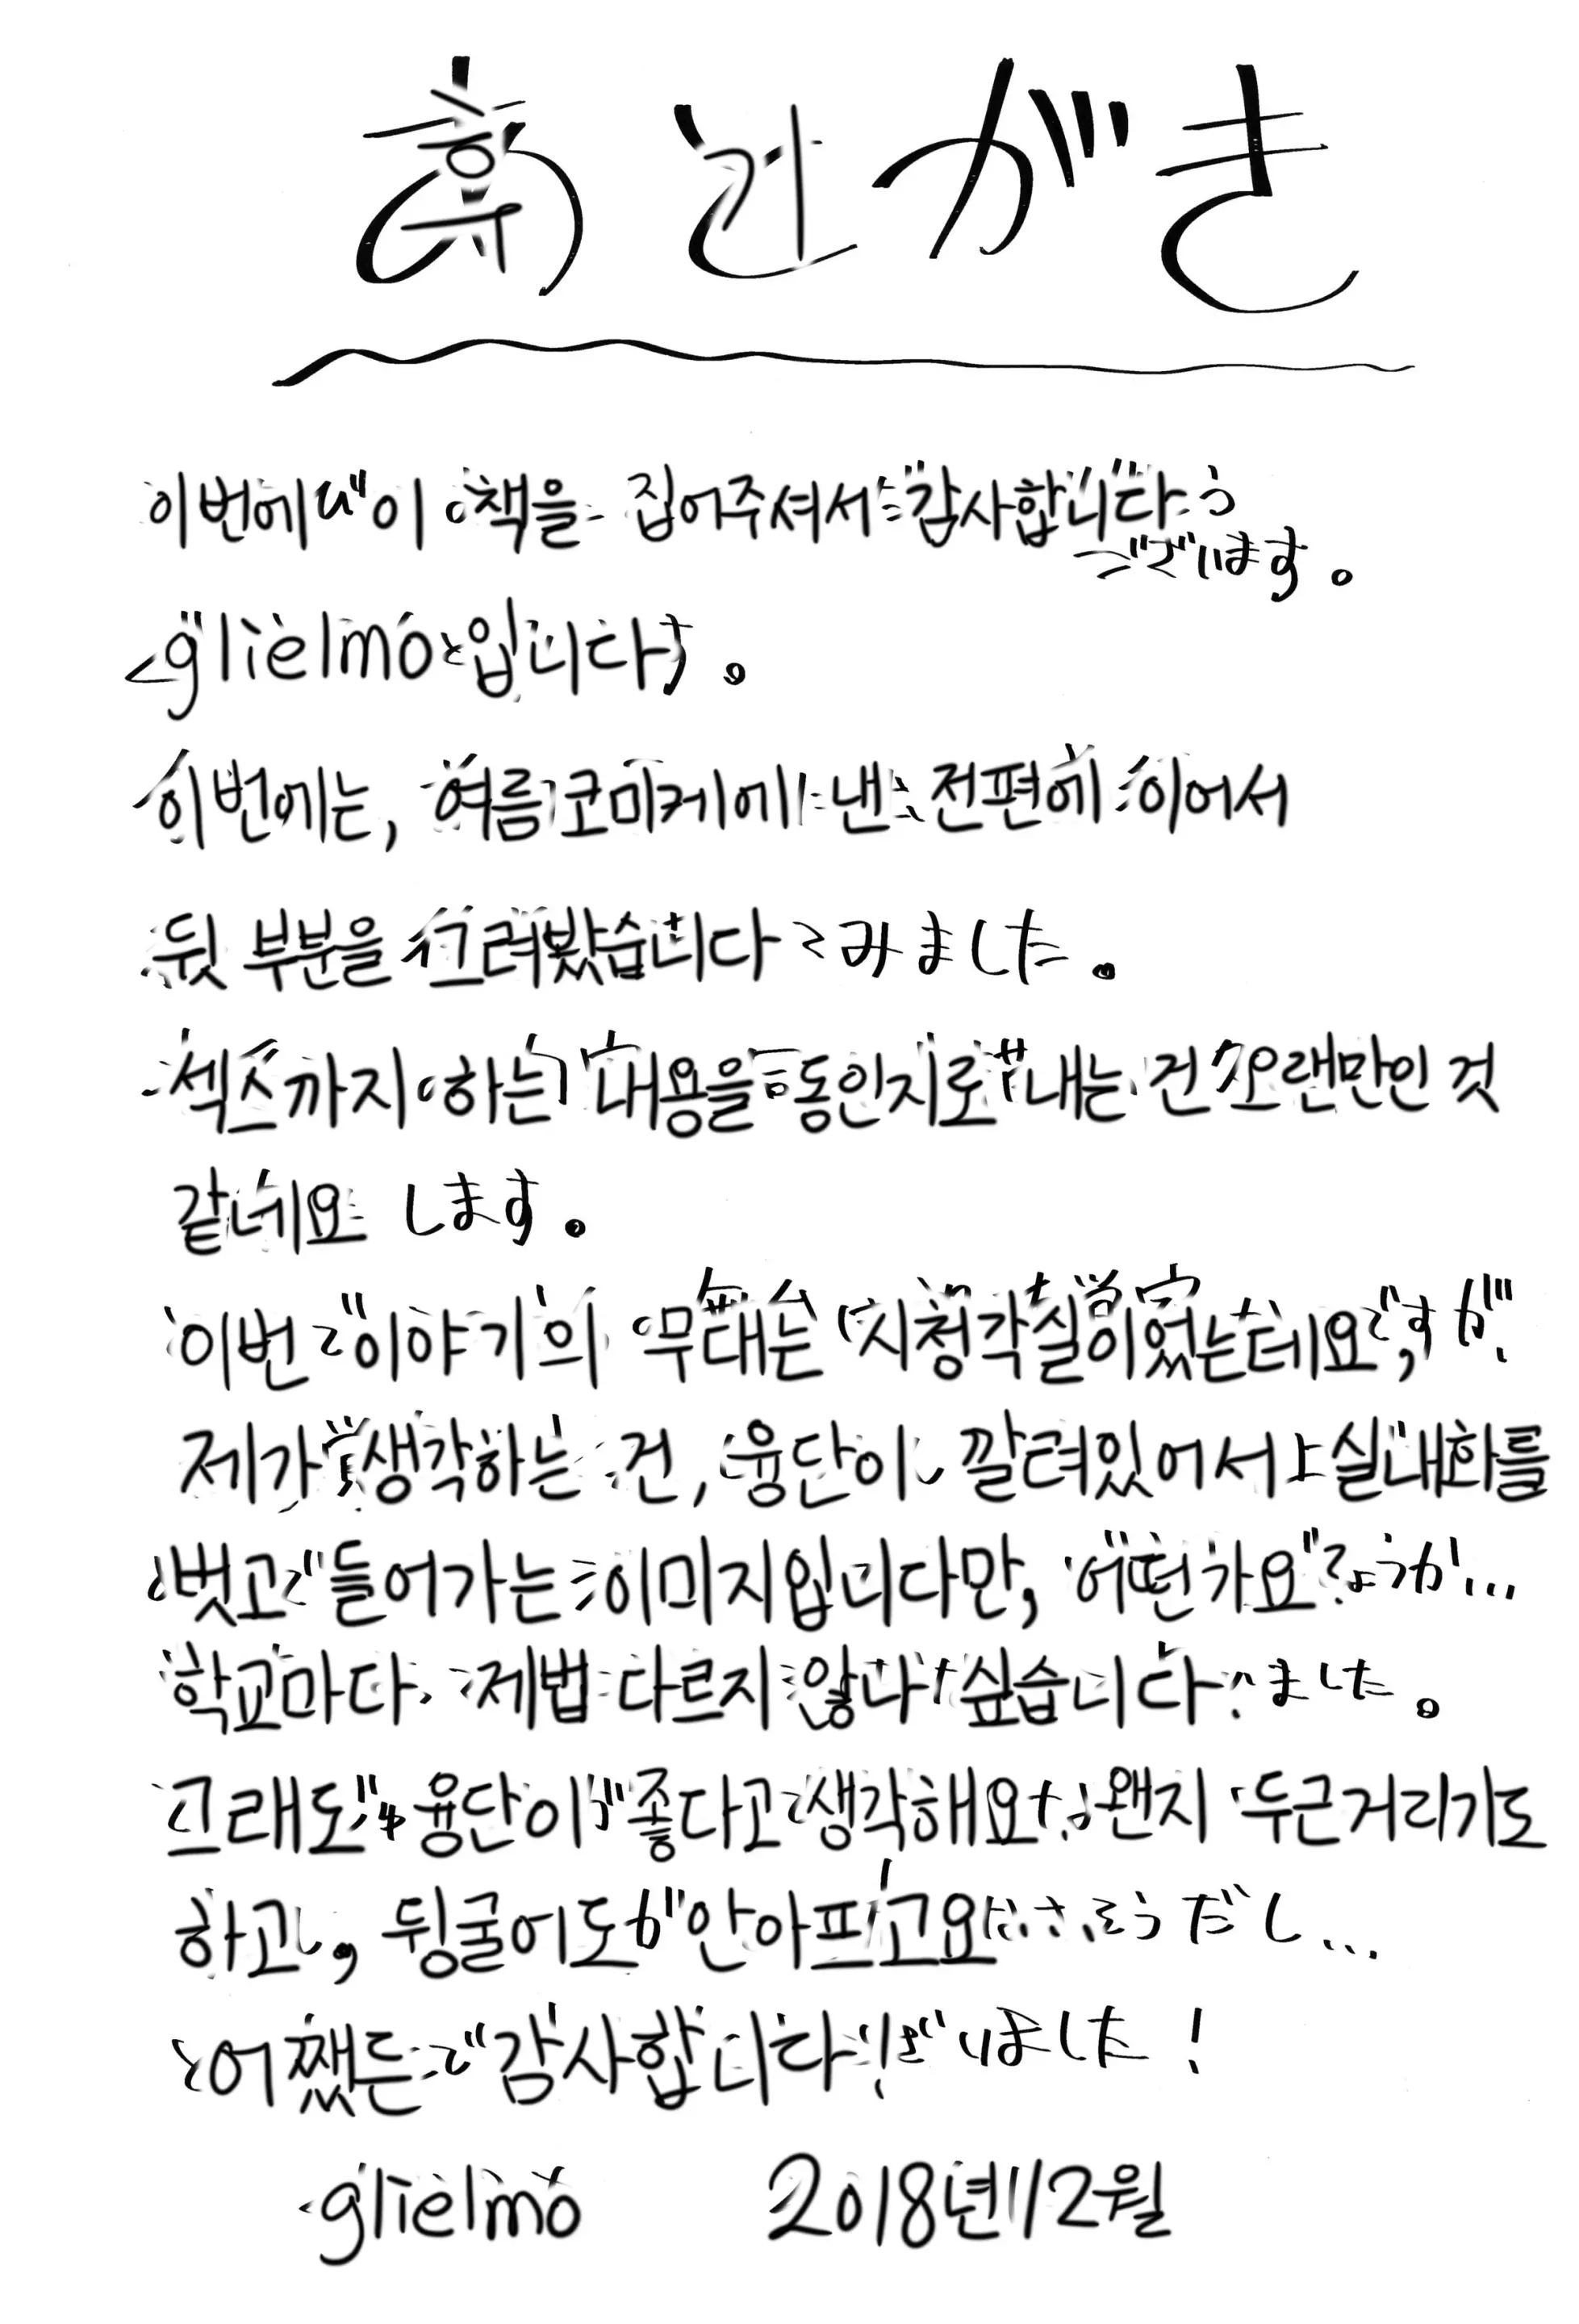 후긔がき
이번에 이 책을 집어주셔서 감사합니다
ございます。
glielmo입니다。
이번에는, 여름 코미케에 낸 전편에 이어서
뒷 부분을 그려봤습니다 みました。
섹스까지 하는 내용을 동인지로 내는 건 오랜만인 것
같네요 します。
이번 이야기의 무대는 시청각실이었는데요, ですが
제가 생각하는 건, 융단이 깔려있어서 실내화를
벗고 들어가는 이미지입니다만, 어떤가요? ょうか...
학교마다 제법 다르지 않나 싶습니다 ました。
그래도 융단이 좋다고 생각해요 왠지 두근거리기도
하고, 뒹굴어도 안아프고요 そうだし...
어쨌든 감사합니다! ざいました!
glielmo 2018년12월